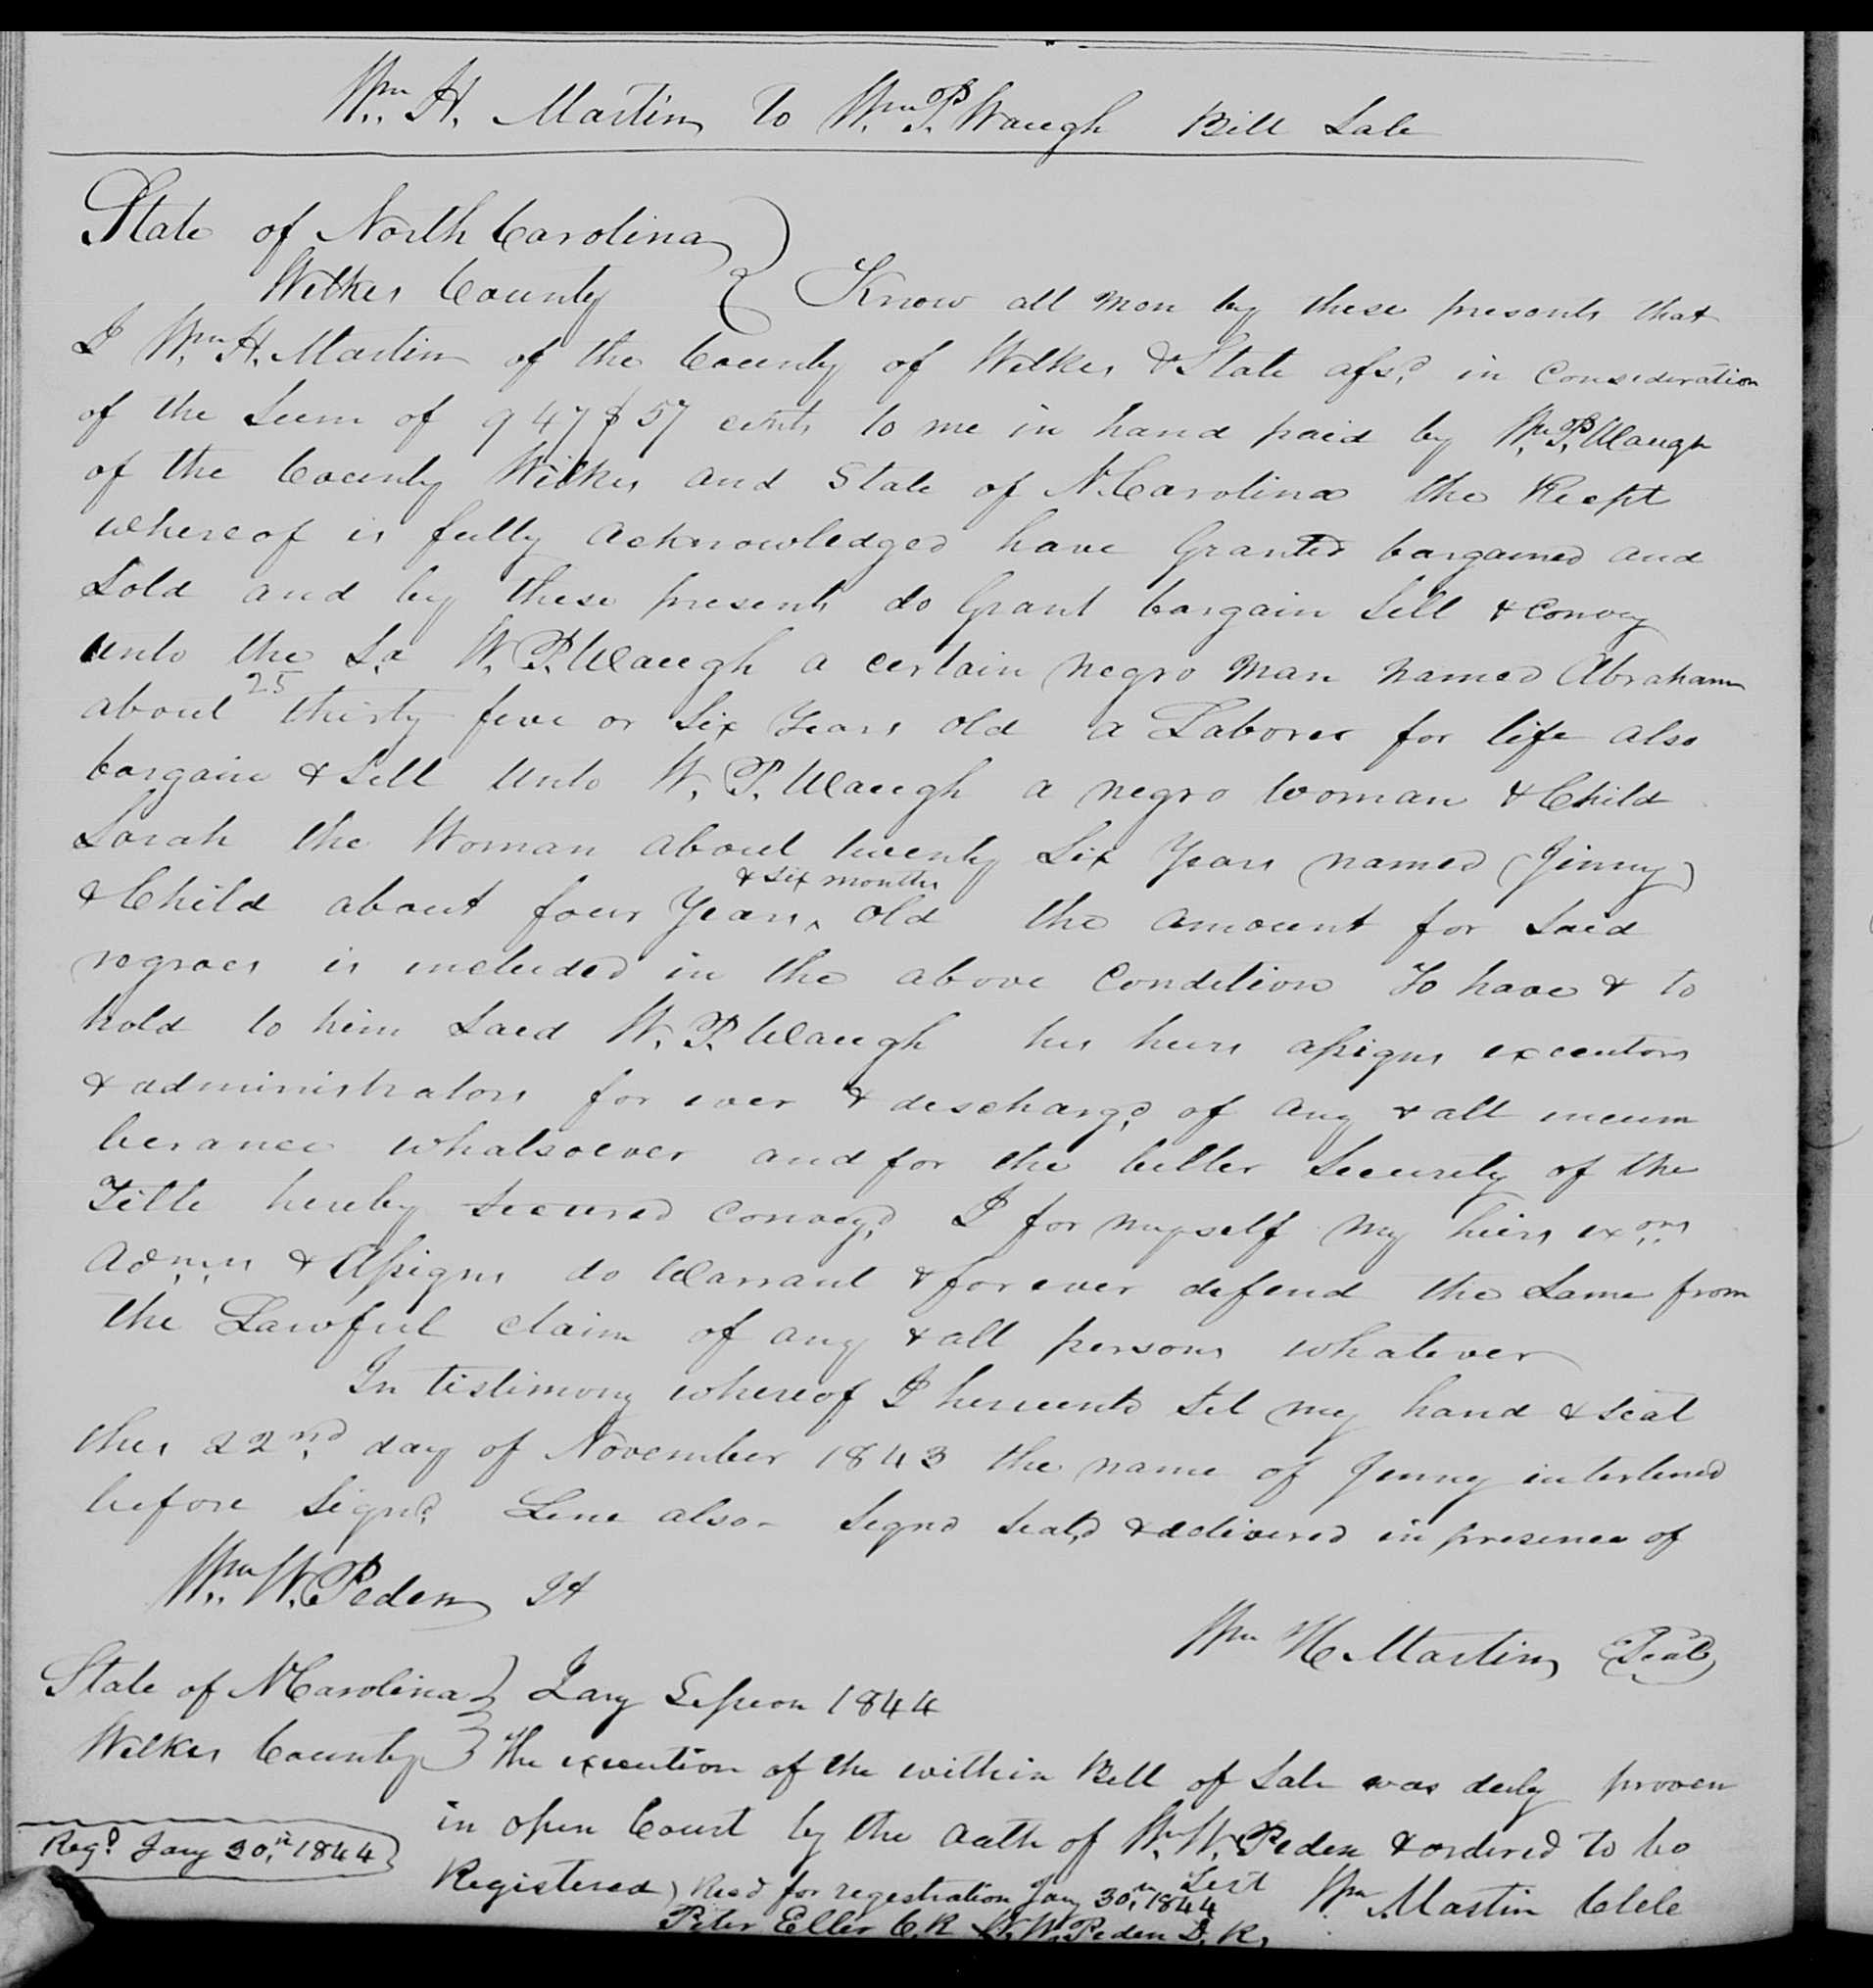 Wm. H. Martin to Wm. P. Waugh Bill Sale
State of North Carolina
Wilkes County } Know all men by these presents that
I Wm. H. Martin of the County of Wilkes & State afsd. in Consideration
of the Sum of 947 $ 57 cents to me in hand paid by Wm. P. Waugh
of the County Wilkes and State of N. Carolina the Reept
whereof is fully acknowledged have Granted bargained and
Sold and by these presents do Grant bargain Sell & convey
unto the Sd W. P. Waugh a certain negro man named Abraham
about 25 thirty five or Six Years old a Laborer for life also
bargain & Sell unto W. P. Waugh a negro woman & Child
Sarah the Woman about twenty Six Years named (Jinny)
& Child about four Years ^ & six months old the amount for Said
negroes is included in the above Condition To have & to
hold to him Said W. P. Waugh his heirs assigns executors
& administrators for ever & discharg'd of any & all incum
berance whatsoever and for the better Security of the
Title hereby secured convey'd I for myself my heirs exors
Admrs & Assigns do Warrant & forever defend the Same from
the Lawful claim of any & all persons whatever
In testimony whereof I hereunto Set my hand & seal
this 22nd day of November 1843 the name of Jenny interlined
before Signd. Line also - Signd Seald & delivered in presence of
Wm. W. Peden Jt
Wm H Martin (Seal)
State of N Carolina } Jany Session 1844
Wilkes County } The execution of the within Bill of Sale was duly proven
in open Court by the oath of W. W. Peden & ordered to be
Registered Test Wm Martin Clk
Recd for registration Jany 30th 1844
Peter Eller C.R. W. W. Peden D. R.
Regd. Jany 30th 1844